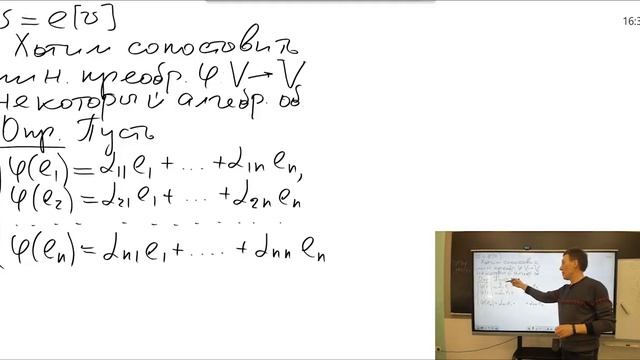 s = e[v]
Хотим сопоставить
лин. преобр. φ V→V
некоторый алгебр. об
Опр. Пусть
φ(e₁) = α₁₁e₁ + ... + α₁ₙeₙ,
φ(e₂) = α₂₁e₁ + ... + α₂ₙeₙ
. . . . . . . . . . . .
φ(eₙ) = αₙ₁e₁ + .... + αₙₙeₙ
16:3